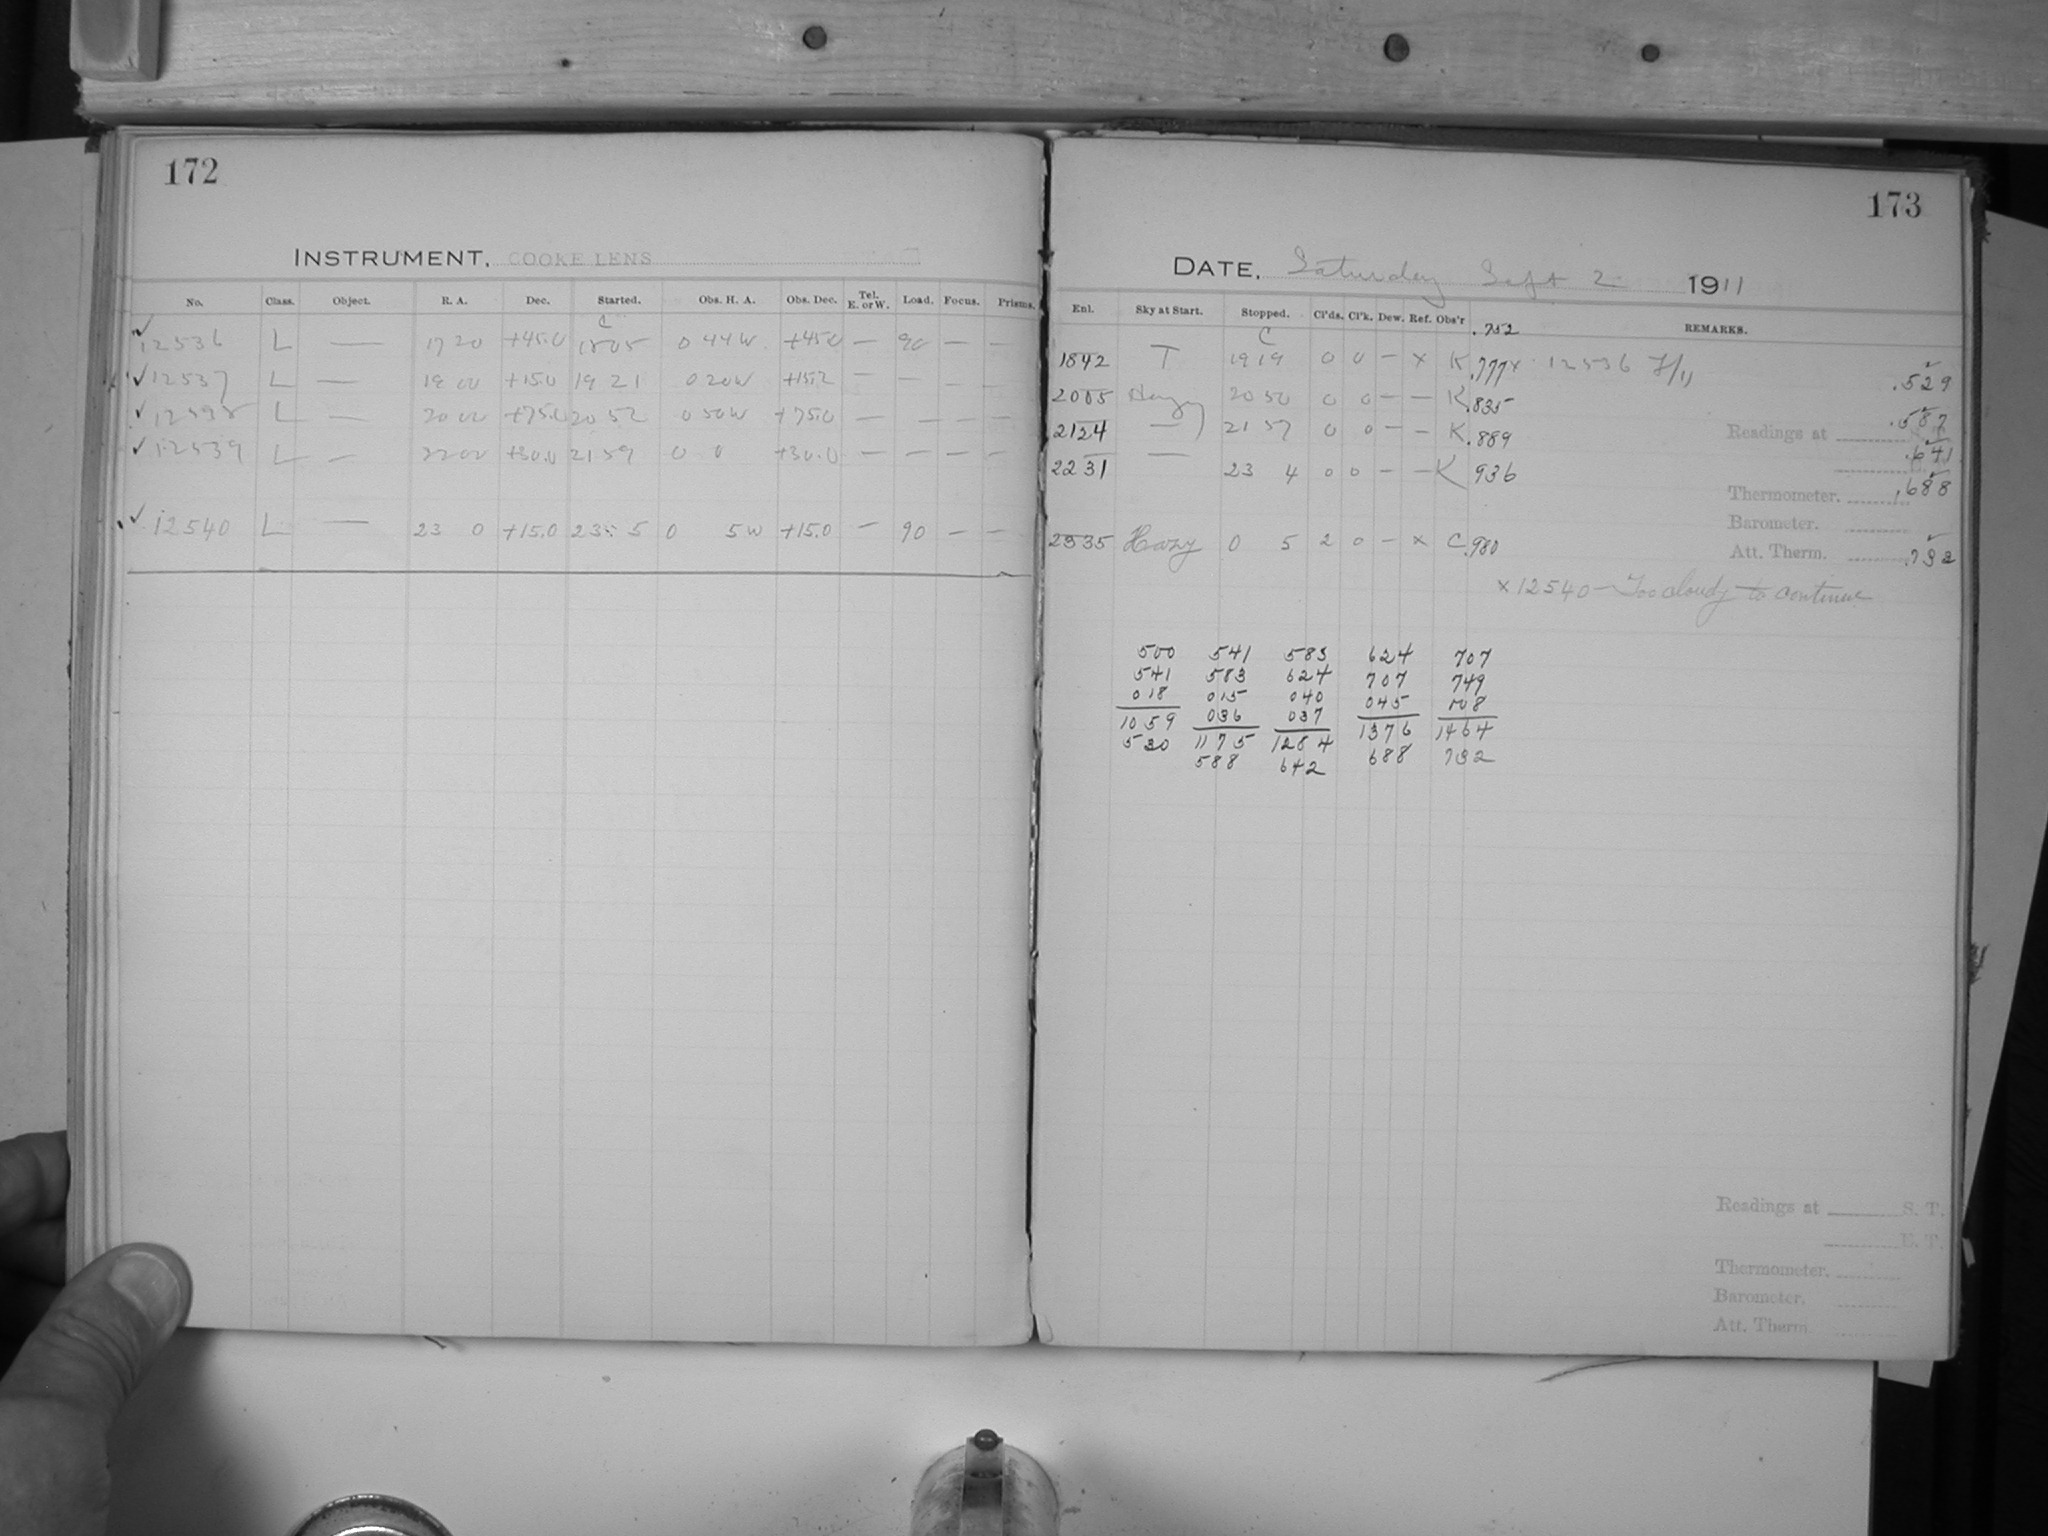 172
INSTRUMENT, COOKE LENS
No. Class. Object. R. A. Dec. Started. Obs. H. A. Obs. Dec. Tel. E. or W. Load. Focus. Prisms.
C
✓ 12536 L — 17 20 +45.0 1805 0 44 W +45.0 — 90 — —
✓ 12537 L — 19 00 +15.0 19 21 0 20 W +15.2 — — — —
✓ 12538 L — 20 00 +75.0 20 52 0 50 W +75.0 — — — —
✓ 12539 L — 22 00 +30.0 21 59 0 0 +30.0 — — — —
✓ 12540 L — 23 0 +15.0 23 5 0 5 W +15.0 — 90 — —
173
DATE, Saturday Sept 2 1911
Enl. Sky at Start. Stopped. Cl'ds. Cl'k. Dew. Ref. Obs'r REMARKS.
.752
C
1842 T 19 19 0 0 — x K .777 x 12536 .529
2005 Hazy 20 50 0 0 — — K .835 .587
2124 — 21 57 0 0 — — K .889 .641
2231 — 23 4 0 0 — — K 936 .688
2335 Hazy 0 5 2 0 — x C .980 .732
Readings at S. T.
Thermometer.
Barometer.
Att. Therm.
x 12540 — Too cloudy to continue
500 541 583 624 707
541 583 624 707 749
018 015 040 045 008
1059 036 037 1376 1464
530 1175 1284 688 732
588 642
Readings at S. T.
E. T.
Thermometer.
Barometer.
Att. Therm.